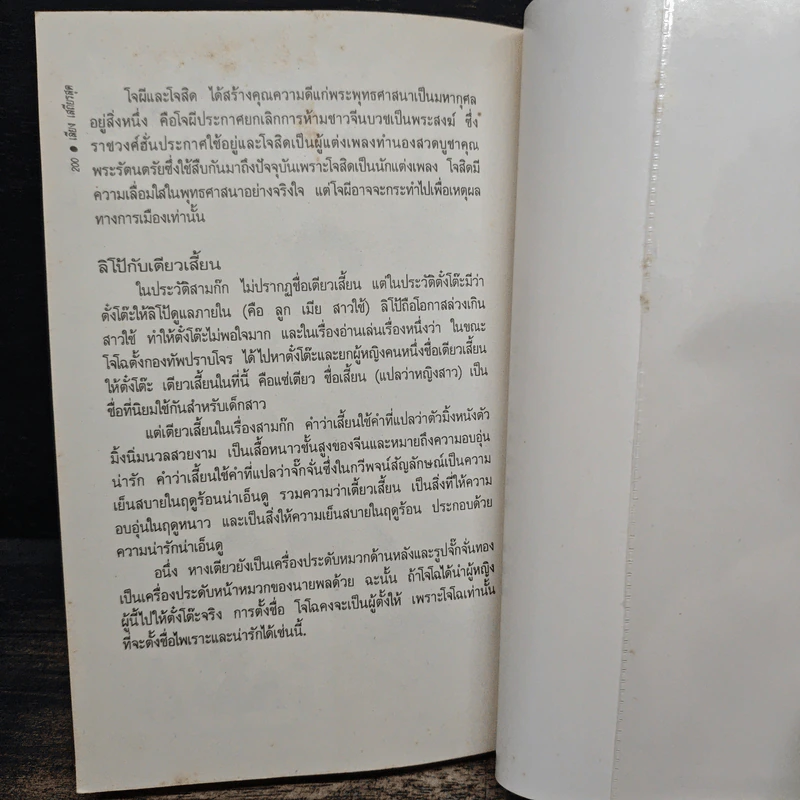 200 ● เสียง เสถียรสุต
โจผีและโจสิด ได้สร้างคุณความดีแก่พระพุทธศาสนาเป็นมหากุศล
อยู่สิ่งหนึ่ง คือโจผีประกาศยกเลิกการห้ามชาวจีนบวชเป็นพระสงฆ์ ซึ่ง
ราชวงศ์ฮั่นประกาศใช้อยู่และโจสิดเป็นผู้แต่งเพลงทำนองสวดบูชาคุณ
พระรัตนตรัยซึ่งใช้สืบกันมาถึงปัจจุบันเพราะโจสิดเป็นนักแต่งเพลง โจสิดมี
ความเลื่อมใสในพุทธศาสนาอย่างจริงใจ แต่โจผีอาจจะกระทำไปเพื่อเหตุผล
ทางการเมืองเท่านั้น
ลิโป้กับเตียวเสี้ยน
ในประวัติสามก๊ก ไม่ปรากฏชื่อเตียวเสี้ยน แต่ในประวัติตั๋งโต๊ะมีว่า
ตั๋งโต๊ะให้ลิโป้ดูแลภายใน (คือ ลูก เมีย สาวใช้) ลิโป้ถือโอกาสล่วงเกิน
สาวใช้ ทำให้ตั๋งโต๊ะไม่พอใจมาก และในเรื่องอ่านเล่นเรื่องหนึ่งว่า ในขณะ
โจโฉตั้งกองทัพปราบโจร ได้ไปหาตั๋งโต๊ะและยกผู้หญิงคนหนึ่งชื่อเตียวเสี้ยน
ให้ตั๋งโต๊ะ เตียวเสี้ยนในที่นี้ คือแซ่เตียว ชื่อเสี้ยน (แปลว่าหญิงสาว) เป็น
ชื่อที่นิยมใช้กันสำหรับเด็กสาว
แต่เตียวเสี้ยนในเรื่องสามก๊ก คำว่าเสี้ยนใช้คำที่แปลว่าตัวมิ้งหนังตัว
มิ้งนิ่มนวลสวยงาม เป็นเสื้อหนาวชั้นสูงของจีนและหมายถึงความอบอุ่น
น่ารัก คำว่าเสี้ยนใช้คำที่แปลว่าจั๊กจั่นซึ่งในกวีพจน์สัญลักษณ์เป็นความ
เย็นสบายในฤดูร้อนน่าเอ็นดู รวมความว่าเตี้ยวเสี้ยน เป็นสิ่งที่ให้ความ
อบอุ่นในฤดูหนาว และเป็นสิ่งให้ความเย็นสบายในฤดูร้อน ประกอบด้วย
ความน่ารักน่าเอ็นดู
อนึ่ง หางเตียวยังเป็นเครื่องประดับหมวกด้านหลังและรูปจั๊กจั่นทอง
เป็นเครื่องประดับหน้าหมวกของนายพลด้วย ฉะนั้น ถ้าโจโฉได้นำผู้หญิง
ผู้นี้ไปให้ตั๋งโต๊ะจริง การตั้งชื่อ โจโฉคงจะเป็นผู้ตั้งให้ เพราะโจโฉเท่านั้น
ที่จะตั้งชื่อไพเราะและน่ารักได้เช่นนี้.